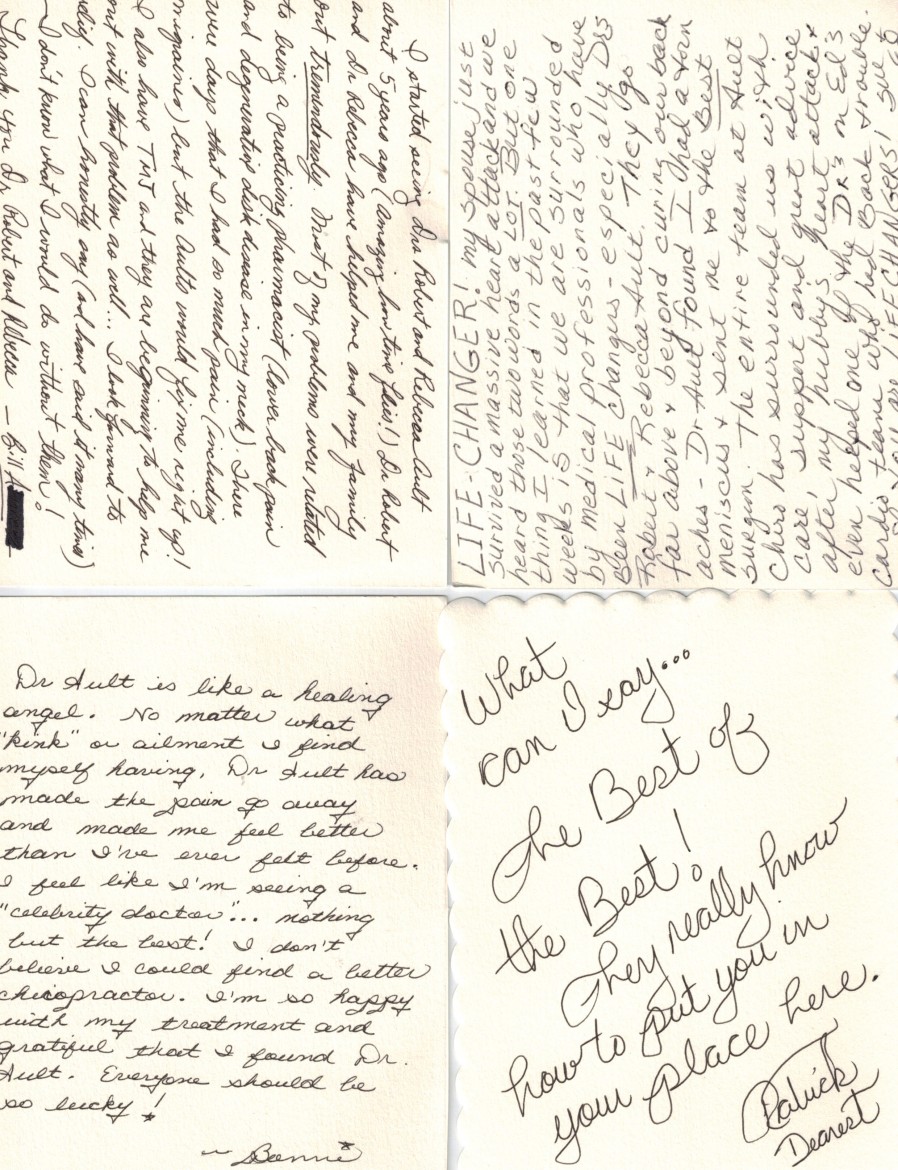 I started seeing Drs Robert and Rebecca Ault
about 5 years ago (amazing how time flies!) Dr Robert
and Dr Rebecca have helped me and my family
out tremendously. Most of my problems were related
to being a practicing pharmacist (lower back pain
and degenerative disk disease in my neck). There
were days that I had so much pain (including
migraines) but the Aults would fix me right up!
I also have TMJ and they are beginning to help me
out with that problem as well... I look forward to
I can honestly say (and have said it many times)
I don't know what I would do without them!
Thank you Dr. Robert and Rebecca — Bill
LIFE-CHANGER! my spouse just
survived a massive heart attack and we
heard those two words a LOT. But one
thing I learned in the past few
weeks is that we are surrounded
by medical professionals who have
been LIFE changers - especially Drs
Robert & Rebecca Ault. They go
far above & beyond curing our back
aches - Dr Ault found I had a torn
meniscus & sent me to the Best
surgeon. The entire team at Ault
Chiro has surrounded us with
care, support and great advice
after my hubby's heart attack &
even helped one of the DR's on Ed's
cardio team who had Back trouble.
You are LIFE CHANGERS!
Dr Ault is like a healing
angel. No matter what
"kink" or ailment I find
myself having, Dr Ault has
made the pain go away
and made me feel better
than I've ever felt before.
I feel like I'm seeing a
"celebrity doctor"... nothing
but the best! I don't
believe I could find a better
chiropractor. I'm so happy
with my treatment and
grateful that I found Dr.
Ault. Everyone should be
so lucky!
~ Bonnie
What
can I say...
the Best of
the Best!
They really know
how to put you in
your place here.
Patrick
Dearest